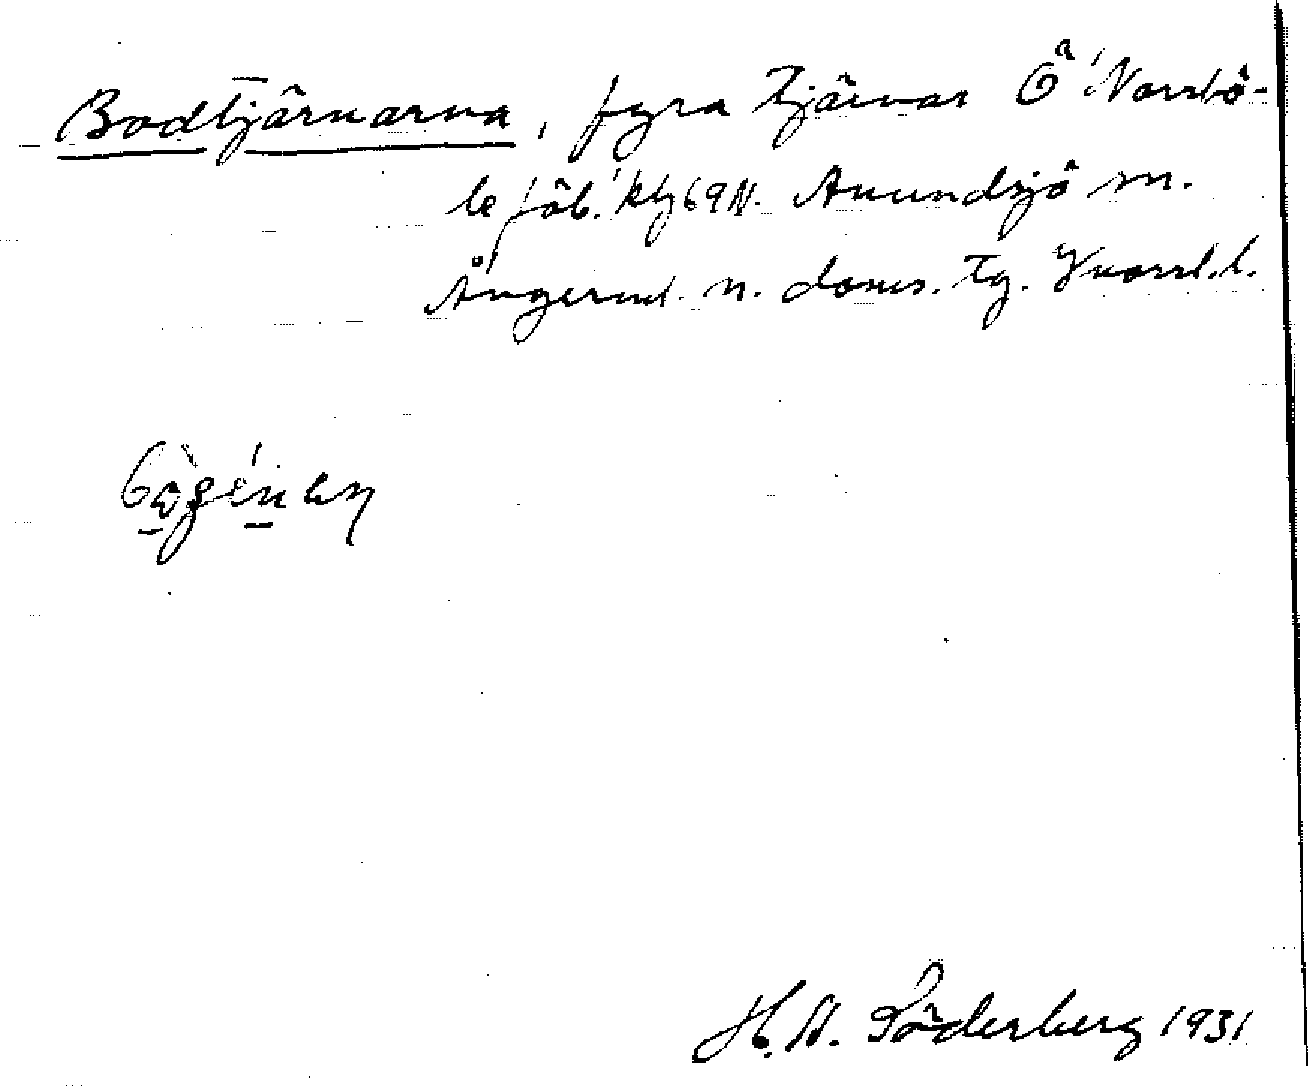 Bodtjärnarna, fyra tjärnar Ö 'Norrbö-
le fäb.' kbl 69 N. Anundsjö sn.
Ångerml. n. doms. tg. Vnorrl. l.
H. N. Söderberg 1931